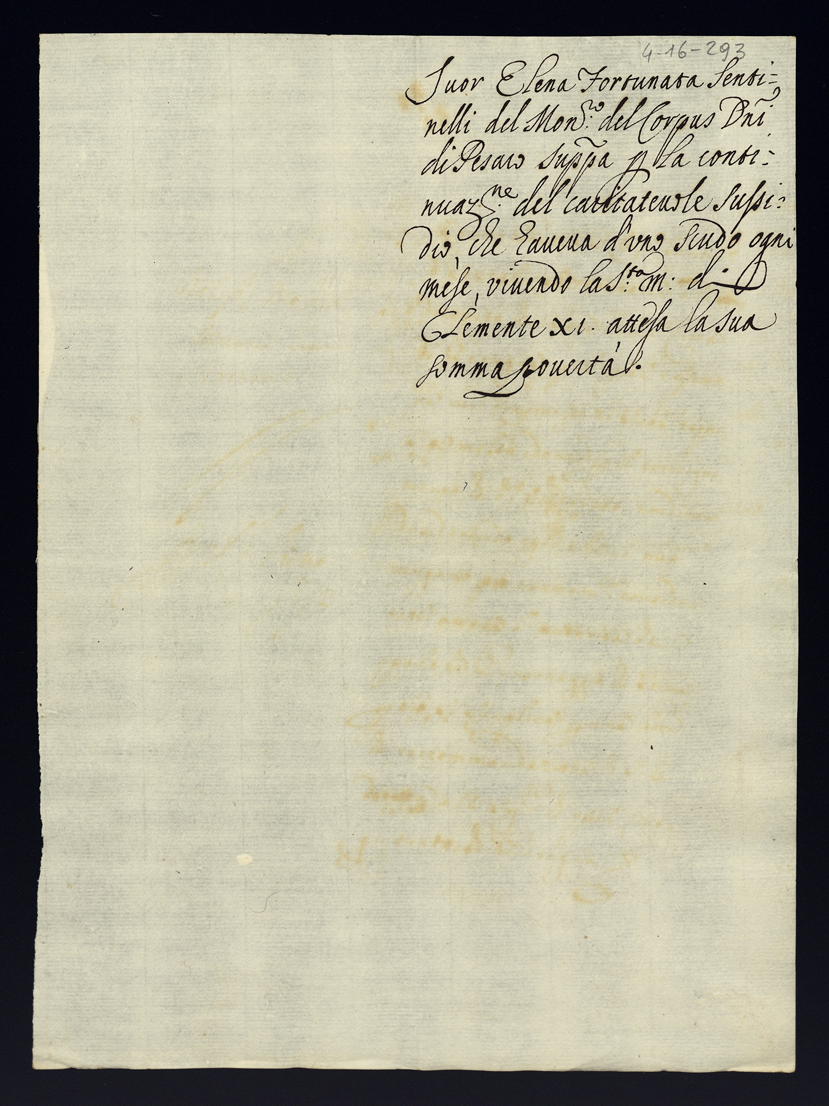 4-16-293
Suor Elena Fortunata Senti=
nelli del Mon:ro del Corpus Dñi
di Pesaro supp̃a p la conti=
nuaz:ne del caritateuole sussi=
dio, che haueua d'uno scudo ogni
mese, viuendo la S:ta m: di
Clemente XI. attesa la sua
somma pouertà.